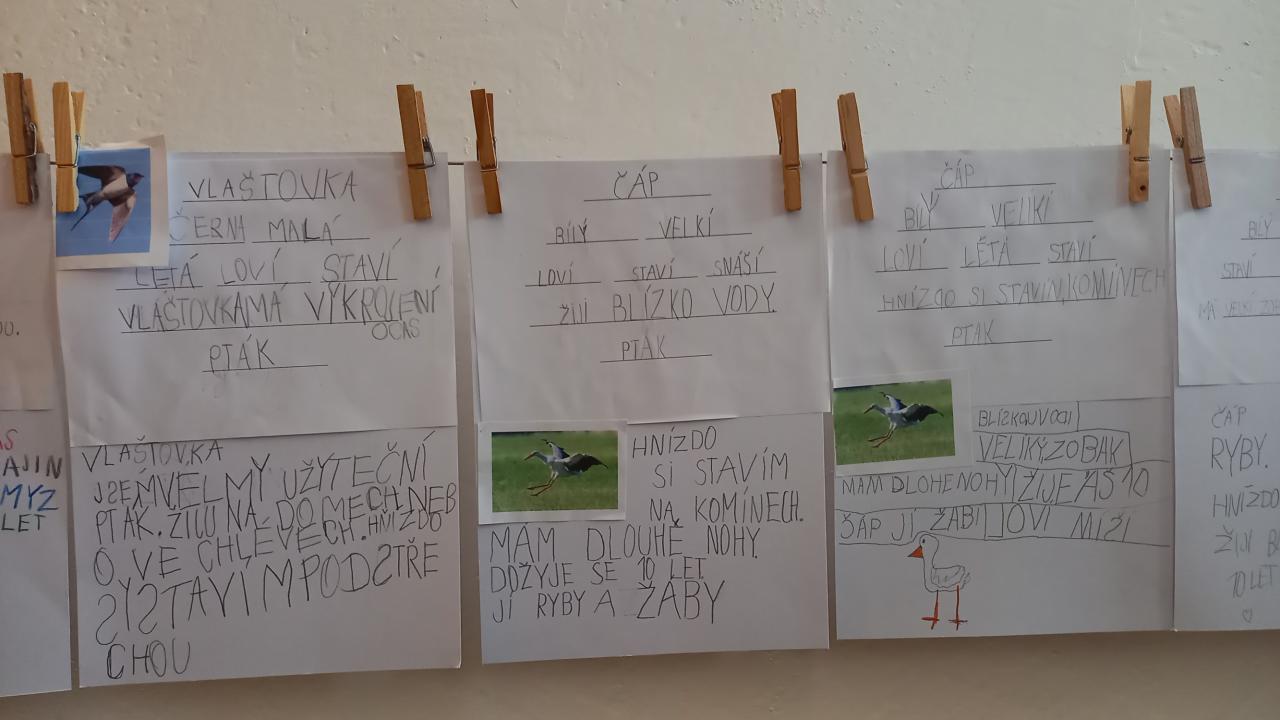 OU.
AS
AJIN
MYZ
LET
VLAŠTOVKA
ČERNA MALÁ
LÉTÁ LOVÍ STAVÍ
VLAŠTOVKAMÁ VÝKROJENÍ
OCAS
PTÁK
VLAŠTOVKA
JSEM VELMY UŽYTEČNÍ
PTÁK. ŽIJU NA DOMECH NEB
O VE CHLÉVECH. HNÍZDO
SÝ STAVÍM POD STŘE
CHOU
ČÁP
BÍLÝ VELKÍ
LOVÍ STAVÍ SNÁŠÍ
ŽIJI BLÍZKO VODY.
PTÁK
HNÍZDO
SI STAVÍM
NA KOMÍNECH.
MÁM DLOUHÉ NOHY.
DOŽYJE SE 10 LET.
JÍ RYBY A ŽÁBY
ČÁP
BÍLÝ VELIKÍ
LOVÍ LÉTÁ STAVÍ
HNÍZDO SI STAVÍ KOMÍVECH
PTAK
VELIKÝ ZOBAK
MAM DLOHE NOHY ŽIJE AŠ 10
ŠÁP JÍ ŽABI LOVI MIŠI
BLÝ
STAVÍ
MÁ VELKÍ
ČÁP
RYBY.
HNÍZDO
ŽIJI
10 LET